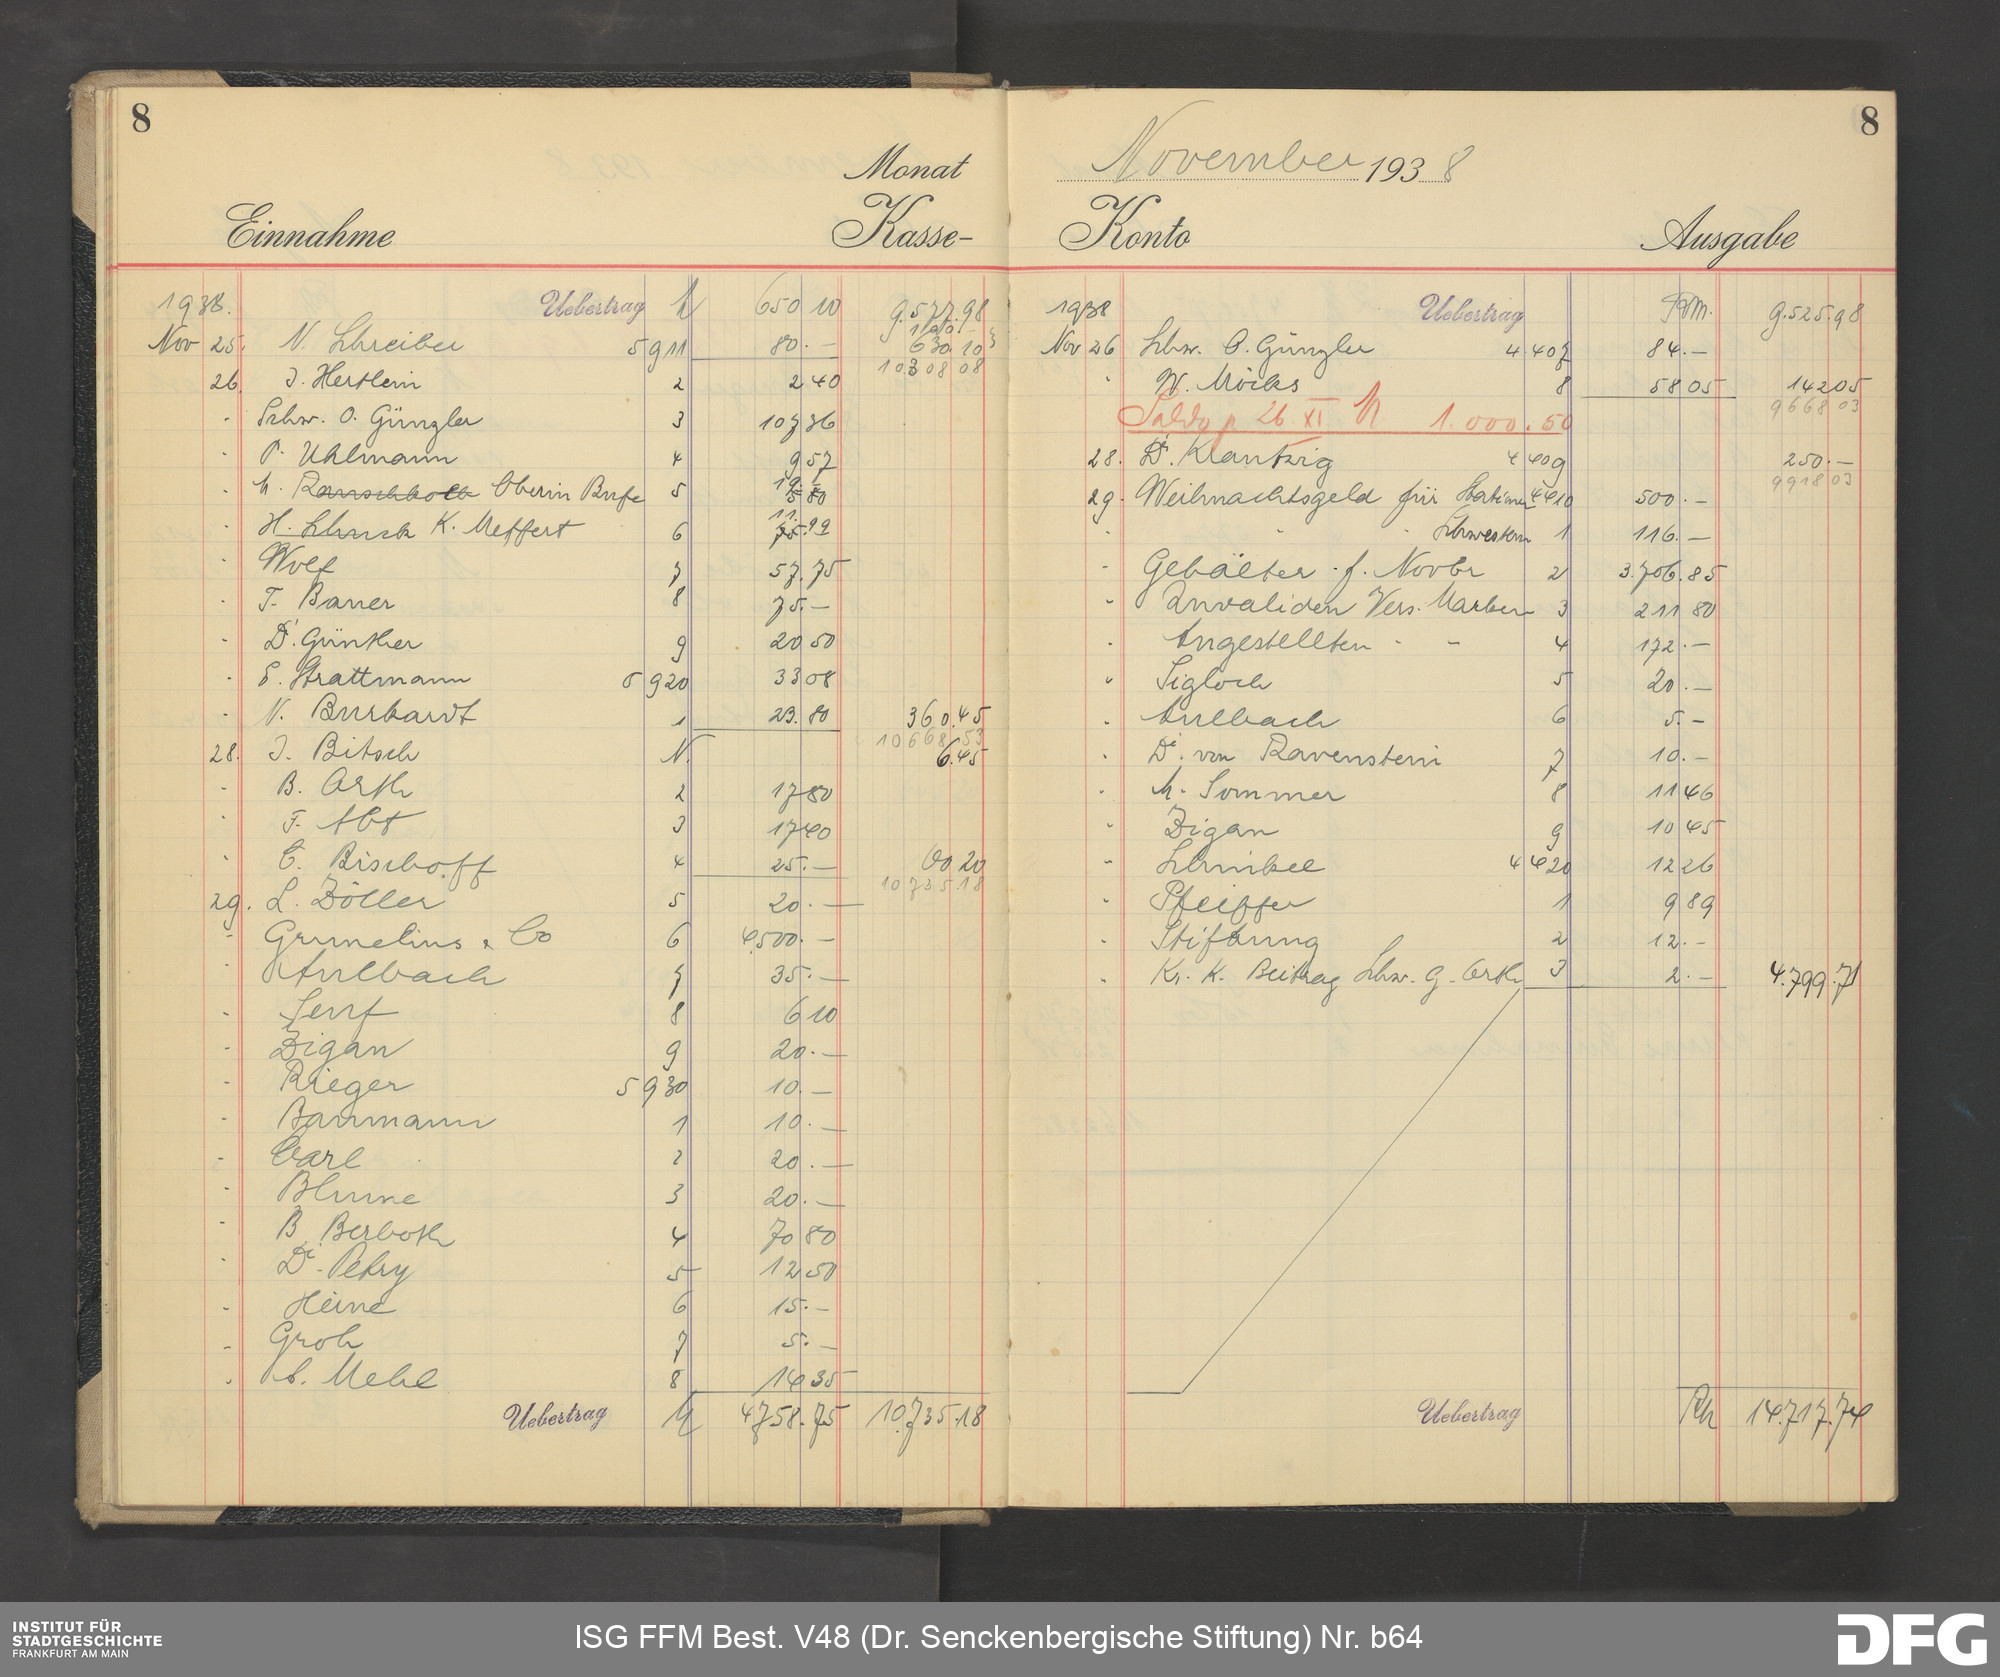 8
Monat
Einnahme Kasse-
1938. Uebertrag 650 10 9.577.98
100.-
Nov 25. N. Schreiber 5911 80.- 630.10
10308 08
26. J. Hertlein 2 2 40
- Schw. O. Günzler 3 107 36
- P. Uhlmann 4 9 57
- Oberin Rufe 5
- H. Schuck K. Meffert 6 11.99
- Wolf 7 57.75
- F. Bauer 8 75.-
- Dr. Günther 9 20 50
- E. Strattmann 5920 33 08
- N. Burkardt 1 23.80 360.45
10668.53
28. J. Bitsch N. 6.45
- B. Orth 2 17 80
- F. Abt 3 17 40
- C. Bischoff 4 25.- 60 20
10735 18
29. L. Zöller 5 20.-
- Grunelius & Co 6 4500.-
- Aulbach 7 35.-
- Senf 8 6 10
- Zigan 9 20.-
- Rieger 5930 10.-
- Baumann 1 10.-
- Carl 2 20.-
- Blume 3 20.-
- B. Berboth 4 70 80
- Dr. Petry 5 12 50
- Heine 6 15.-
- Groh 7 5.-
- Mehl 8 14 35
Uebertrag 4758.75 10.735.18
8
November 1938
Konto Ausgabe
1938 Uebertrag RM. 9.525.98
Nov 26 Schw. O. Günzler 4407 84.-
- W. Möcks 8 58 05 142 05
9668 03
Saldo p. 26. XI. 1.000.50
28. Dr. Krantzig 4409 250.-
9918 03
29. Weihnachtsgeld für 4410 500.-
- " " Schwestern 1 116.-
- Gehälter f. Novbr 2 3.706.85
- Invaliden Vers. Marken 3 211 80
- Angestellten " " 4 172.-
- Sigloch 5 20.-
- Aulbach 6 5.-
- Dr. von Ravenstein 7 10.-
- M. Sommer 8 11 46
- Zigan 9 10 45
- Schinkel 4420 12 26
- Pfeiffer 1 9 89
- Stiftung 2 12.-
- Kr. K. Beitrag Schw. G. Orth 3 2.- 4.799.71
Uebertrag RM 14.717.74
INSTITUT FÜR
STADTGESCHICHTE
FRANKFURT AM MAIN
ISG FFM Best. V48 (Dr. Senckenbergische Stiftung) Nr. b64
DFG